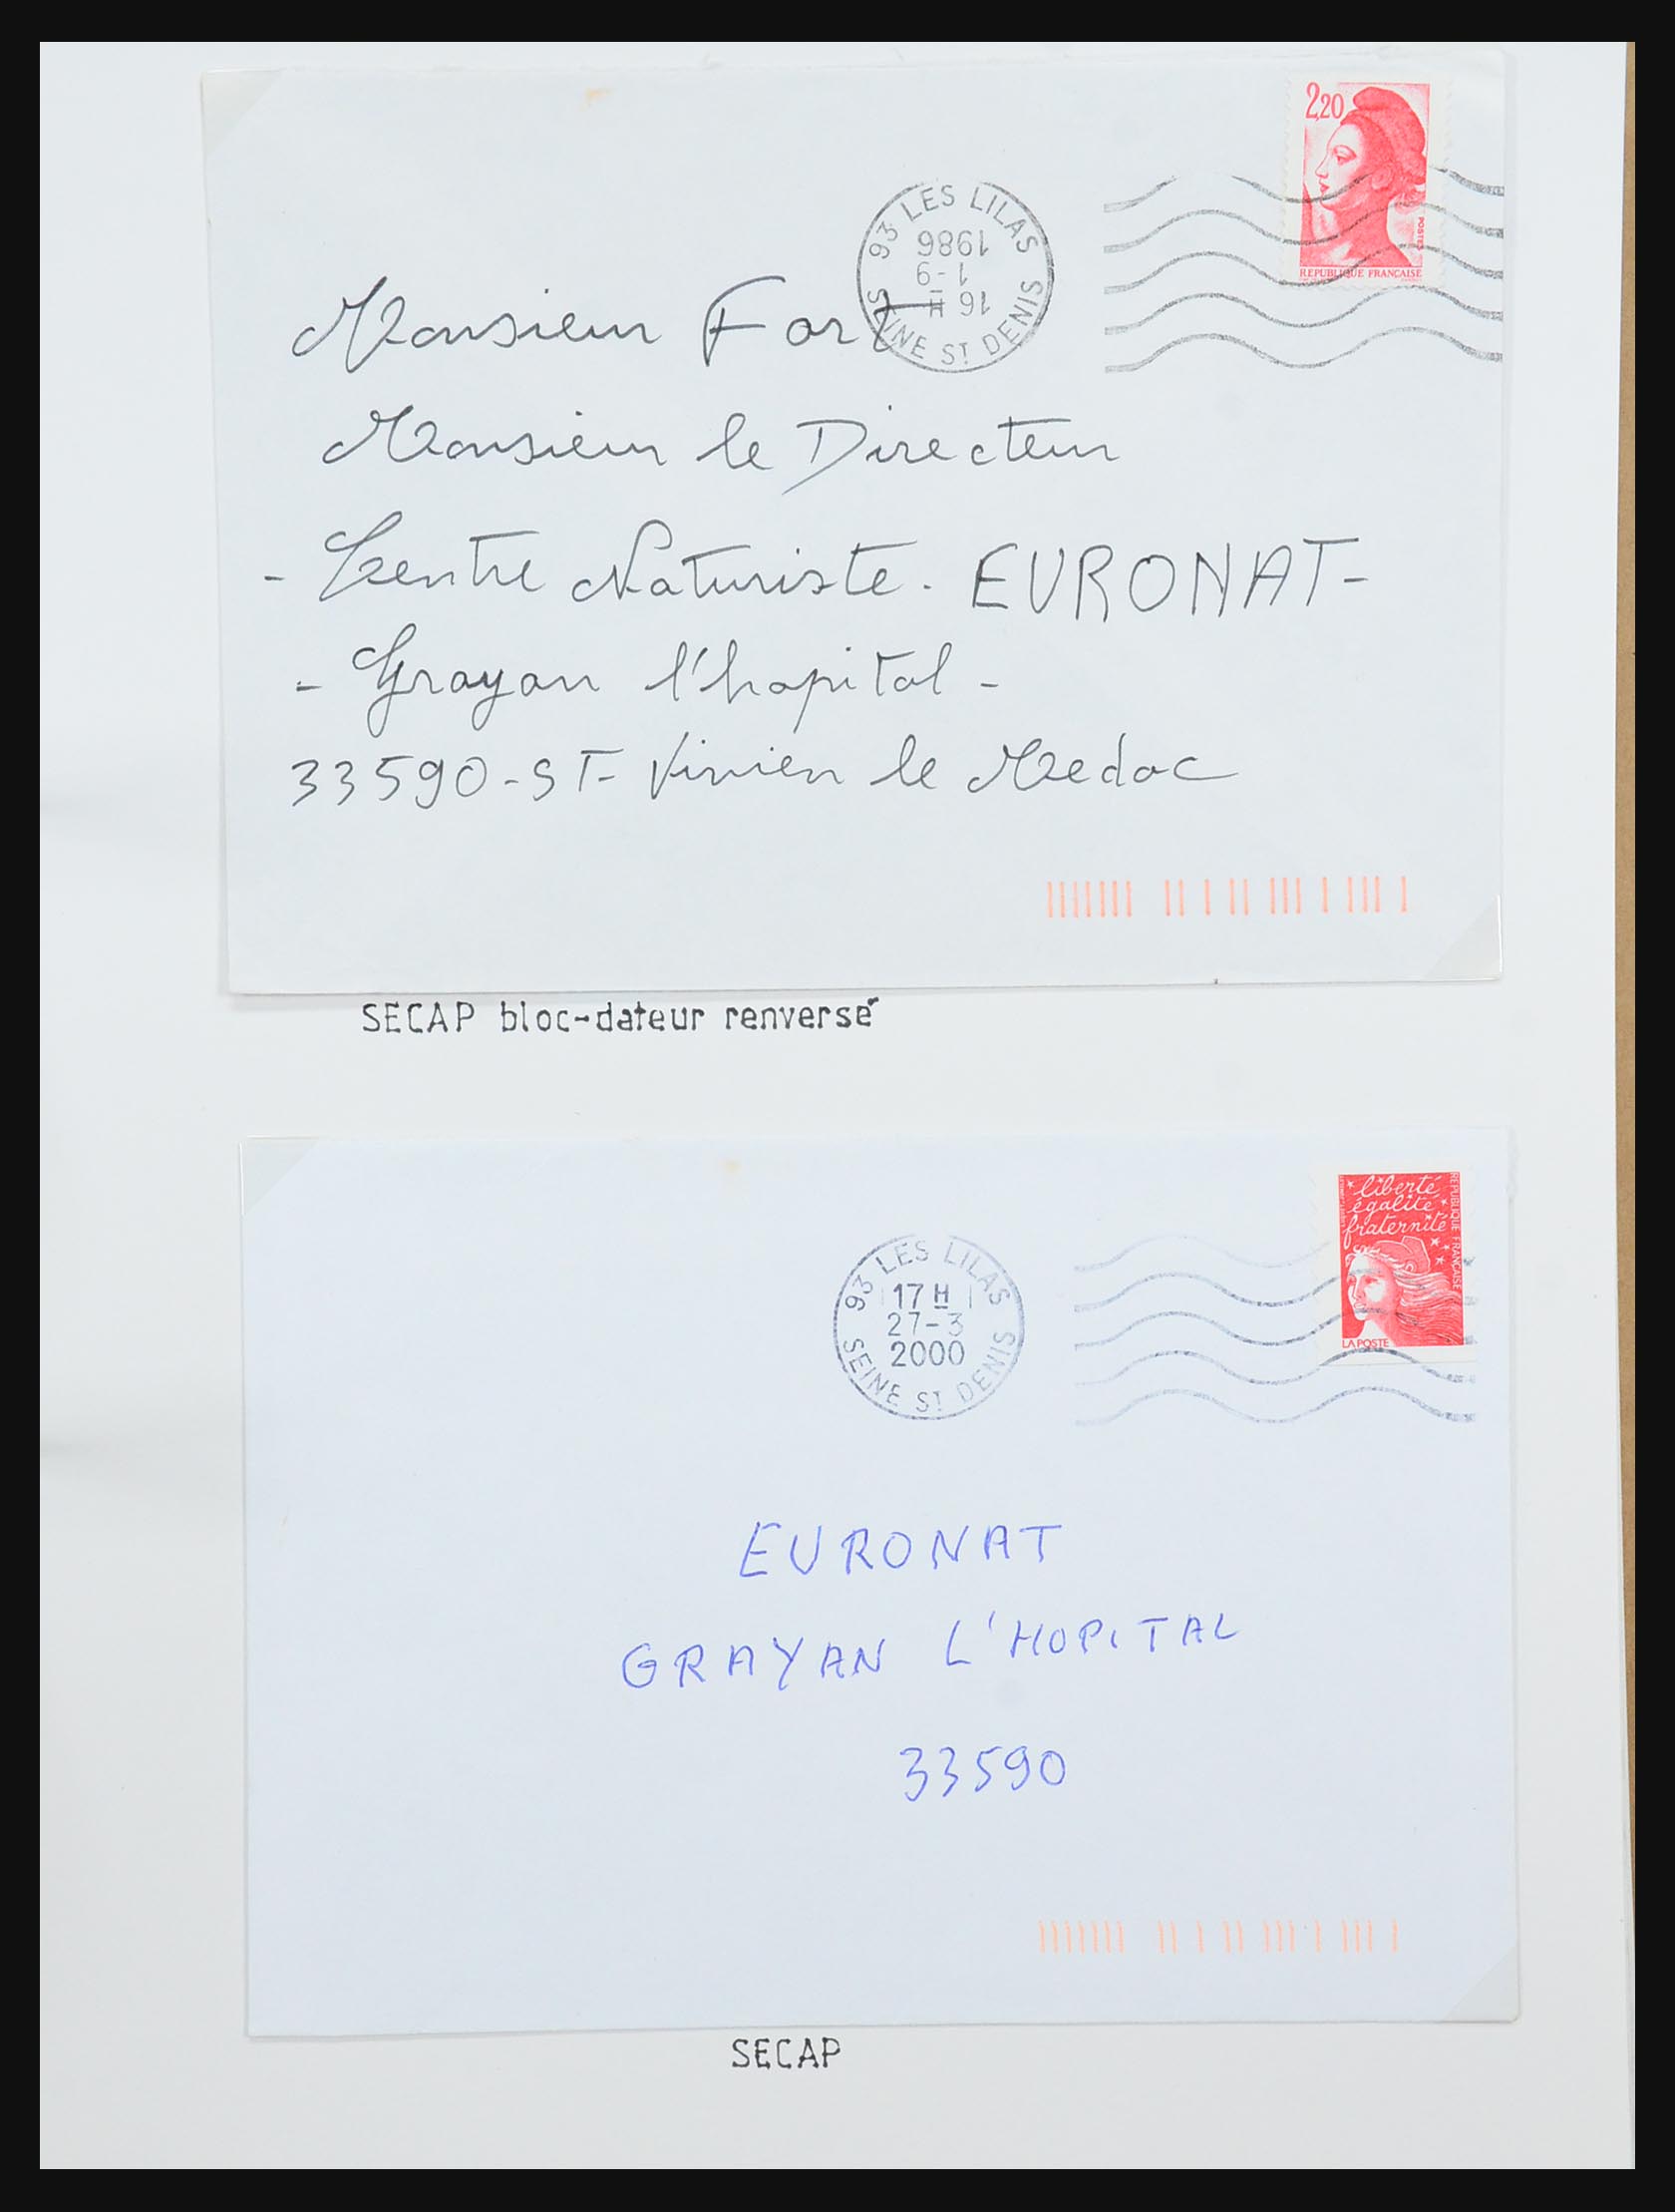 2,20
POSTES
REPUBLIQUE FRANCAISE
93 LES LILAS
16 H
1-9
1986
SEINE ST DENIS
Monsieur Fort
Monsieur le Directeur
- Centre Naturiste. EURONAT-
- Grayan l'hopital -
33590-ST- Vivien le Medoc
SECAP bloc-dateur renversé
liberté
égalité
fraternité
REPUBLIQUE FRANÇAISE
LA POSTE
93 LES LILAS
17 H
27-3
2000
SEINE ST DENIS
EURONAT
GRAYAN L'HOPITAL
33590
SECAP